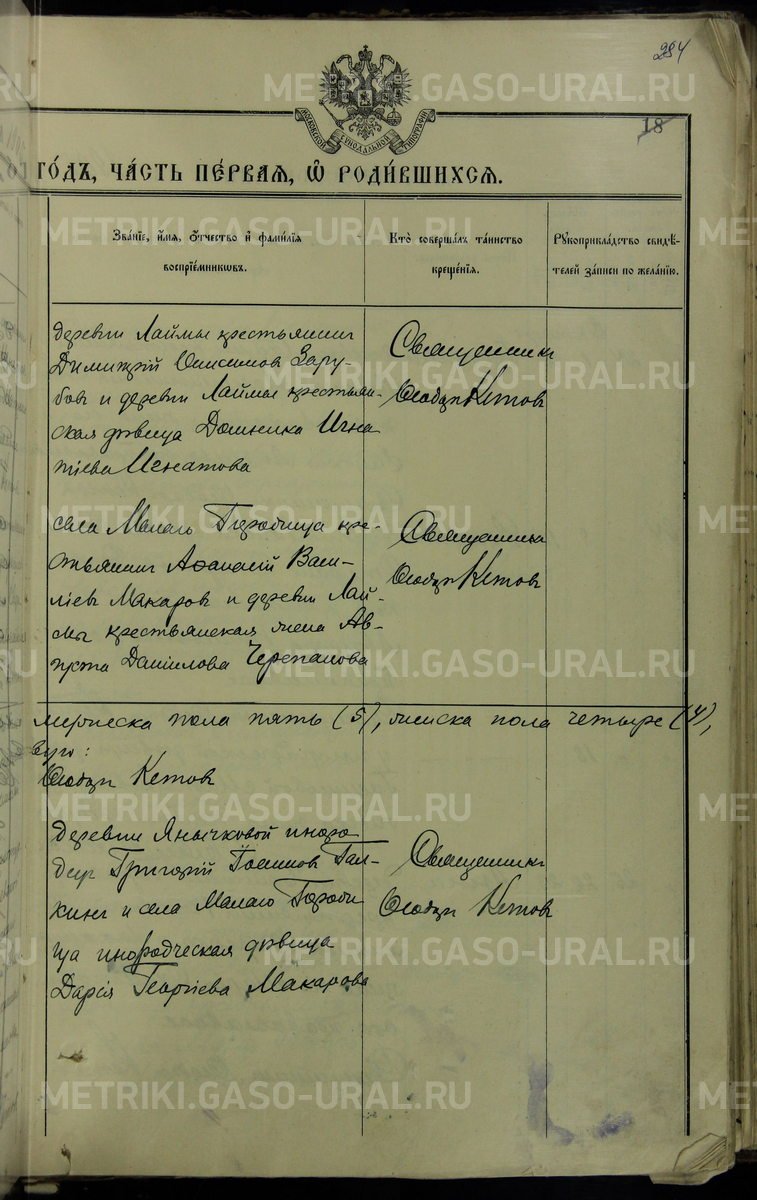 294
18
МОСКОВСКОЙ СѴНОДАЛЬНОЙ ТИПОГРАФІИ
ГО́ДЪ, ЧА́СТЬ ПЕ́РВАЯ, Ѿ РОДИ́ВШИХСЯ.
Зва́ніе, и́мя, о́тчество и҆ фами́лія
воспріе́мниковъ.
Кто̀ соверша́лъ та́инство
креще́нія.
Рꙋкоприкла́дство свидѣ́-
телей за́писи по жела́нію.
деревни Лаймы крестьянинъ
Димитрій Онисимовъ Зару-
бовъ и деревни Лаймы крестьян-
ская дѣвица Домника Игна
тіева Игнатова
Священникъ
Кетовъ
села Малаго Городища кре-
стьянинъ Аѳанасій Васи-
ліевъ Макаровъ и деревни Лай-
мы крестьянская жена Ав-
густа Даніилова Черепанова
Священникъ
Кетовъ
мужеска пола пять (5), женска пола четыре (4),
Кетовъ
деревни Янычковой иноро
децъ Григорій Іоанновъ Гал-
кинъ и села Малаго Городи
ща инородческая дѣвица
Дарія Георгіева Макарова
Священникъ
Кетовъ
METRIKI.GASO-URAL.RU